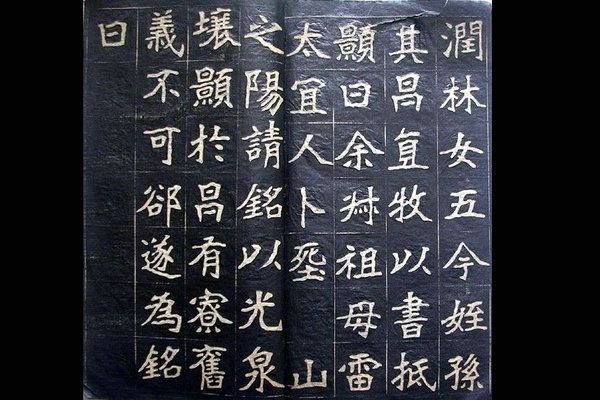 潤林女五今姪孫
其昌直牧以書抵
顥曰余叔祖母雷
太冝人卜山
之陽請銘以光泉
壤顥於昌有寮舊
義不可卻遂為銘
曰